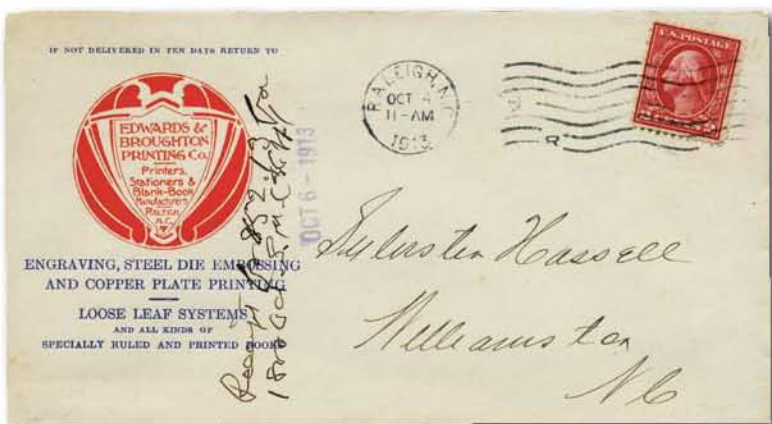 IF NOT DELIVERED IN TEN DAYS RETURN TO
EDWARDS &
BROUGHTON
PRINTING Co.
Printers,
Stationers &
Blank-Book
Manufacturers
RALEIGH,
N.C.
ENGRAVING, STEEL DIE EMBOSSING
AND COPPER PLATE PRINTING
LOOSE LEAF SYSTEMS
AND ALL KINDS OF
SPECIALLY RULED AND PRINTED BOOKS
OCT 6 - 1913
RALEIGH, N.C.
OCT 4
11-AM
1913
U.S. POSTAGE
Sylvester Hassell
Williamston
NC